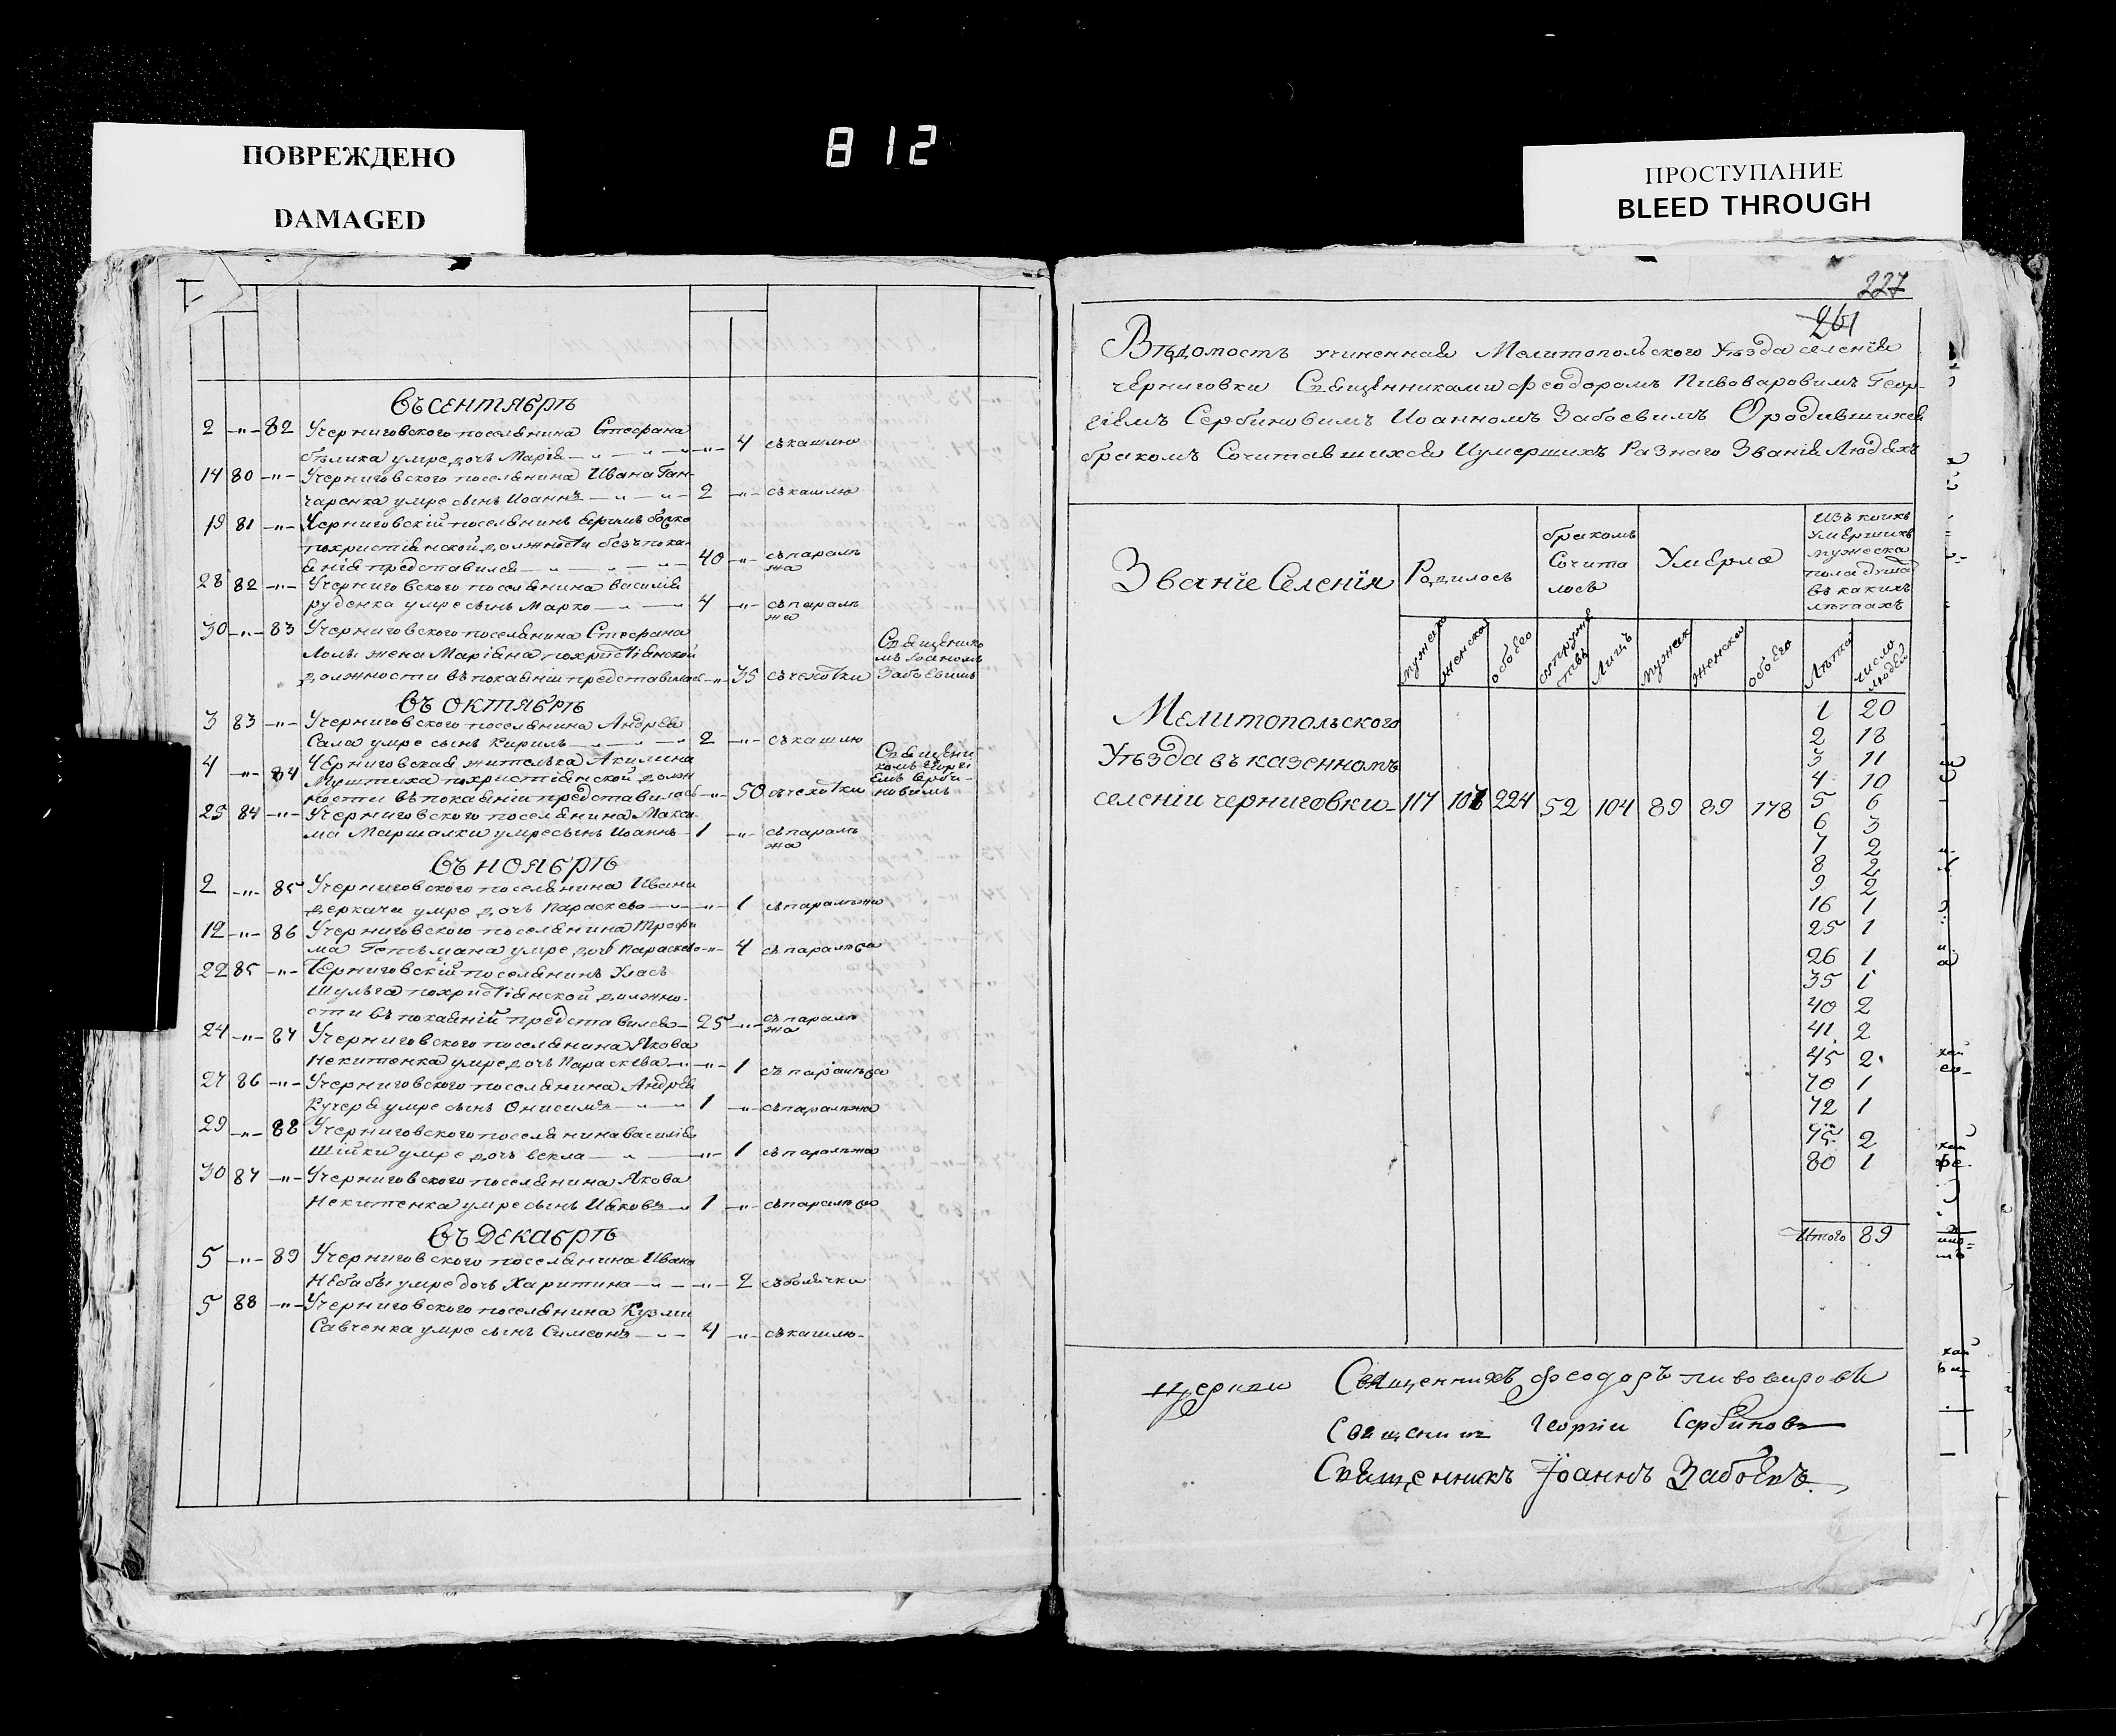 ПОВРЕЖДЕНО
DAMAGED
812
ПРОСТУПАНИЕ
BLEED THROUGH
Въ сентябрѣ
2 -"- 82 Учерниговского поселянина Стефана
бѣлика умре дочь Марія -"- 4 съкашлю
14 80 -"- Учерниговского поселянина Ивана Ган-
чаренка умре сынъ Иоаннъ 2 -"- съкашлю
19 81 -"- Черниговскій поселянинъ
похристіянской должности безъ пока-
янія представился 40 -"- съпаралѣ
жа
28 82 -"- Учерниговского поселянина Василія
руденка умре сынъ Марко 4 -"- съпаралѣ
жа
30 -"- 83 Учерниговского поселянина Стефана
жена Маріяна похристіянской
должности въ покаяніи представилась -"- 35 съчехотки
Священико
мъ Иоаномъ
Забоевимъ
Въ октябрѣ
3 83 -"- Учерниговского поселянина Андрея
Сала умре сынъ Кирилъ 2 -"- съкашлю
4 -"- 84 Черниговская жителька Акилина
Муштиха похристіянской долж
ности въ покаяніи представилась -"- 50 съчехотки
Священи
комъ Георгі
емъ Серби-
новимъ
25 84 -"- Учерниговского поселянина Макси-
ма Маршалки умре сынъ Иоаннъ 1 -"- съпаралѣ
жа
Въ ноябрѣ
2 -"- 85 Учерниговского поселянина Ивани
деркачи умре дочь Параскева -"- 1 съпаралѣжа
12 -"- 86 Учерниговского поселянина Трофи
ма Гетьмана умре доч Параскева -"- 4 съпаралѣжа
22 85 -"- Черниговскій поселянинъ Уласъ
Шульга похристіянской должно-
сти въ покаяній представился 25 -"- съпаралѣ
жа
24 -"- 87 Учерниговского поселянина Якова
Некитенка умре дочь Параскева -"- 1 съпаралѣжа
27 86 -"- Учерниговского поселянина Андрея
Кучера умре сынъ Онисимъ 1 -"- съпаралѣжа
29 -"- 88 Учерниговского поселянина василія
Шійки умре дочь векла -"- 1 съпаралѣжа
30 87 -"- Учерниговского поселянина Якова
Некитенка умре сынъ Ияковъ 1 -"- съпаралѣжа
Въ декабрѣ
5 -"- 89 Учерниговского поселянина Ивана
Небабы умре дочь Харитина -"- 2 съболячки
5 88 -"- Учерниговского поселянина Кузми
Савченка умре сынъ Симеонъ 4 -"- съкашлю
227
261
Вѣдомость учиненная Мелитопольского Уѣзда селенія
черниговки Священниками феодоромъ Пивоваровимъ Геор-
гіемъ Сербиновимъ Иоанномъ Забоевимъ Ородившихся
бракомъ Сочитавшихся Иумершихъ Разнаго Званія Людяхъ
Званіе Селенія Родилось бракомъ Сочита лось Умерло Изъ коихъ Умершихъ мужеска пола душъ въ какихъ лѣтаахъ
мужеска женска обоего супружя ствъ Лицъ мужеск женска обоего Лѣта число людей
Мелитопольского
Уѣзда въ казенномъ
селеніи черниговки 117 107 224 52 104 89 89 178
1 20
2 18
3 11
4 10
5 6
6 3
7 2
8 2
9 2
16 1
25 1
26 1
35 1
40 2
41 2
45 2
70 1
72 1
75 2
80 1
Итого 89
церкви Священникъ феодоръ пивоваровъ
Священикъ Георгіи Сербиновъ
Священникъ Іоаннъ Забоевъ